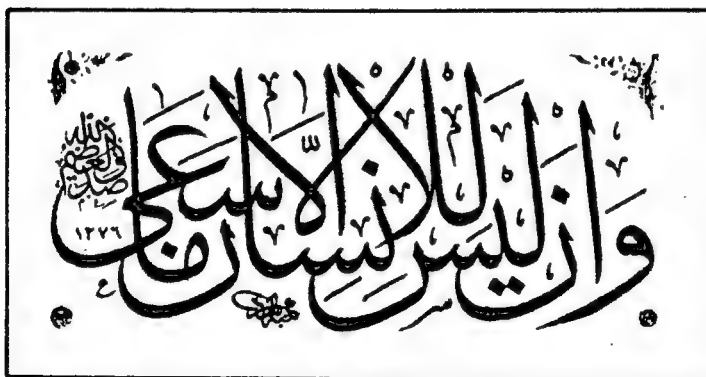 وَأَنْ لَيْسَ لِلْإِنْسَانِ إِلَّا مَا سَعَى
صدق الله العظيم
١٢٧٦